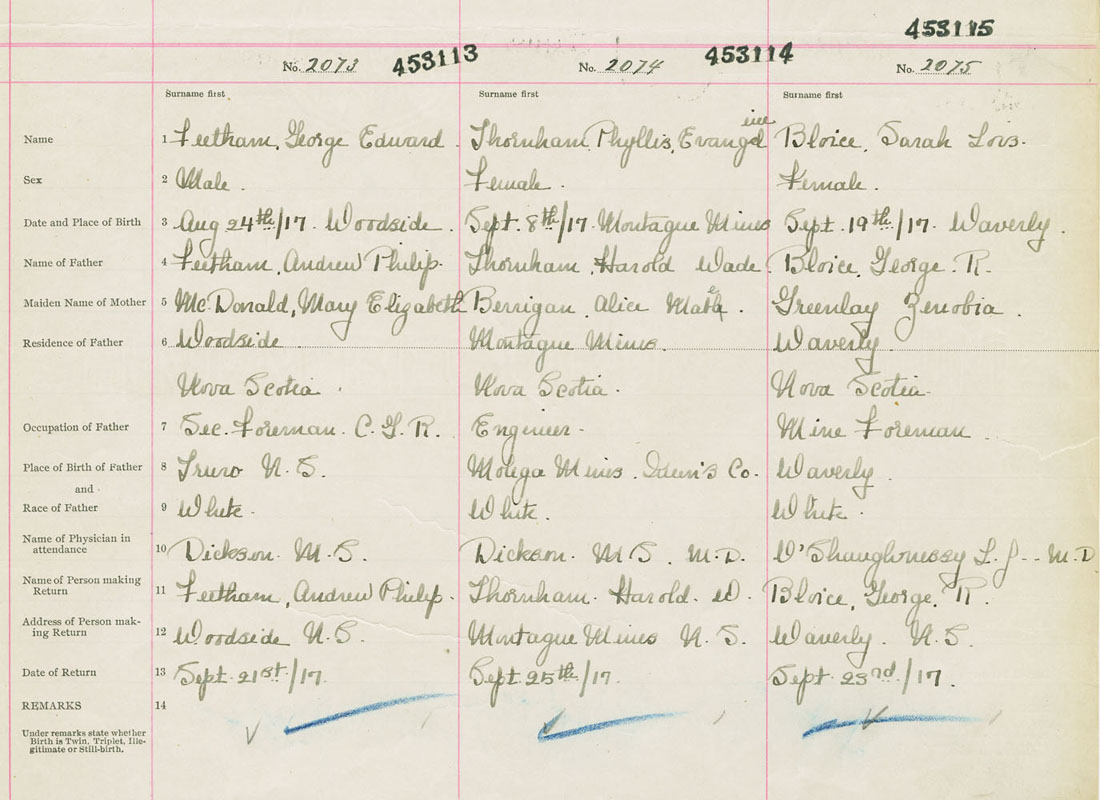 453115
No. 2073 453113 No. 2074 453114 No. 2075
Surname first Surname first Surname first
Name 1 Feetham, George Edward. Thornham, Phyllis, Evangeline Bloice, Sarah Lois.
Sex 2 Male. Female. Female.
Date and Place of Birth 3 Aug 24th/17. Woodside. Sept. 8th/17. Montague Mines Sept. 19th/17. Waverly.
Name of Father 4 Feetham, Andrew Philip. Thornham, Harold Wade. Bloice, George. R.
Maiden Name of Mother 5 McDonald, Mary Elizabeth Berrigan, Alice Greenlay Zenobia.
Residence of Father 6 Woodside. Montague Mines. Waverly.
Nova Scotia. Nova Scotia. Nova Scotia.
Occupation of Father 7 Sec. Foreman. C. G. R. Engineer. Mine Foreman.
Place of Birth of Father 8 Truro N. S. Molega Mines. Co. Waverly.
and
Race of Father 9 White. White. White.
Name of Physician in
attendance 10 Dickson. M. S. Dickson. M S. M.D. O'Shaughnessy L. J. M.D
Name of Person making
Return 11 Feetham, Andrew Philip. Thornham. Harold. W. Bloice, George, R.
Address of Person mak-
ing Return 12 Woodside N. S. Montague Mines N. S. Waverly. N. S
Date of Return 13 Sept. 21st/17. Sept. 25th/17. Sept. 23rd/17.
REMARKS 14
Under remarks state whether
Birth is Twin, Triplet, Ille-
gitimate or Still-birth.